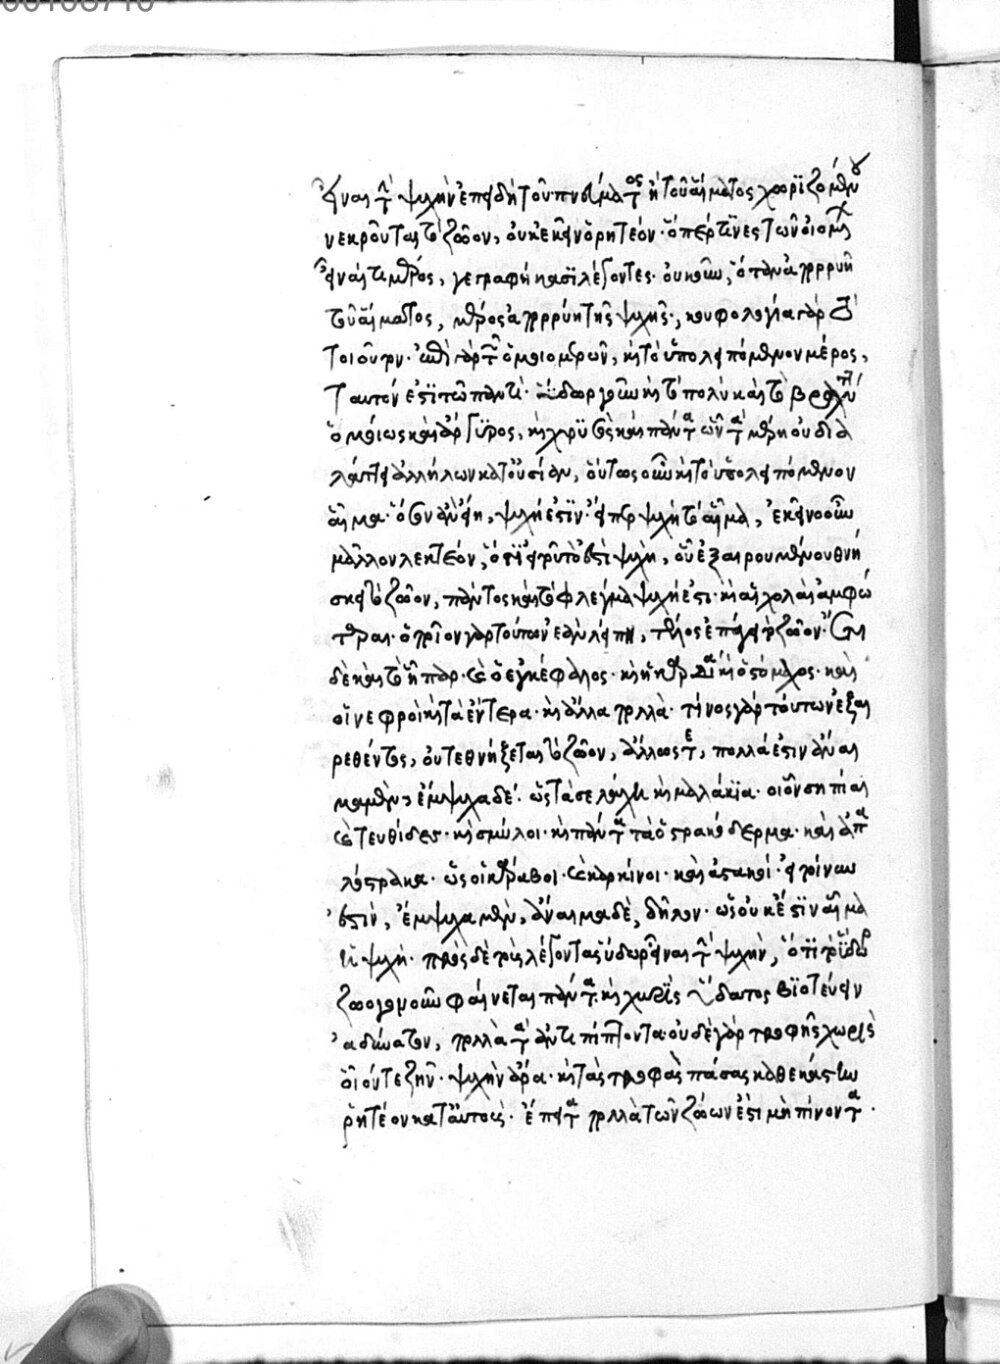 εἶναι τὴν ψυχὴν ἐπειδὴ τοῦ πνεύματος ἢ τοῦ αἵματος χωρϊζομένου
νεκροῦται τὸ ζῶον, οὐκ ἐκεῖνο ῥητέον· ὅπερ τινὲς τῶν οἰομένων
εἶναί τι μέρος, γεγραφήκασϊ λέγοντες· οὐκοῦν, ὅταν ἀπορρυῆ
τοῦ αἵματος, μέρος ἀπορρύη τῆς ψυχῆς, κουφολογία γὰρ τὸ
τοιοῦτον· ἐπὶ γὰρ τῶν ὁμοιομερῶν, καὶ τὸ ὑπολειπόμενον μέρος,
ταυτόν ἐστϊ τῶ παντί· ὕδωρ γοῦν καὶ τὸ πολὺ καὶ τὸ βραχύτατον
ὁμοίως καὶ ἄργϋρος, καὶ χρϋσὸς καὶ πάντα ὧν τὰ μέρη οὐ δια
λάττει ἀλλήλων κατ' οὐσίαν, οὕτως οὖν καὶ τὸ ὑπολειπόμενον
αἷμα· ὅσον ἂν εἴη, ψυχή ἐστϊν· εἴπερ ψυχὴ τὸ αἷμα, ἐκεῖνο οὖν
μᾶλλον λεκτέον, ὅτϊ εἰ τοῦτό ἐστι ψυχή, οὗ ἐξαιρουμένου θνή
σκει τὸ ζῶον, πάντως καὶ τὸ φλέγμα ψυχή ἐστι· καὶ αἱ χολαὶ ἀμφό
τεραι· ὁποῖον γὰρ τούτων ἐὰν λείπη, τέλος ἐπάγει τὸ ζῶον· ἔσται
δὲ καὶ τὸ ἧπαρ· καὶ ὁ ἐγκέφαλος· καὶ ἡ καρδία καὶ ὁ στόμαχος· καὶ
οἱ νεφροὶ καὶ τὰ ἔντερα· καὶ ἄλλα πολλά· τίνος γὰρ τούτων ἐξαι
ρεθέντος, οὐ τεθνήξεται τὸ ζῶον, ἄλλως τε, πολλά ἐστιν ἄναι
μα μὲν, ἔμψυχα δέ· ὡς τὰ σελάχη καὶ μαλάκϊα· οἷον σηπίαι
καὶ τευθίδες· καὶ σμύλοι· καὶ πάντα τὰ ὀστρακόδερμα· καὶ μα
λόστρακα· ὡς οἱ κάραβοι· καὶ καρκίνοι· καὶ ἀστακοί· εἰ τοίνυν
ἐστὶν, ἔμψυχα μὲν, ἄναιμα δὲ, δῆλον· ὡς οὐκ ἔστϊν αἷμα
ἡ ψυχή· πρὸς δὲ τοὺς λέγοντας ὕδωρ εἶναι τὴν ψυχὴν, ὅτϊ τὸ ὕδωρ
ζωογονοῦν φαίνεται πάντα· καὶ χωρὶς ὕδατος βϊοτεύειν
ἀδύνατον, πολλὰ τὰ ἀντιπίπτοντα· οὐδὲ γὰρ τροφῆς χωρὶς
οἷόν τε ζῆν· ψυχὴν ἄρα· καὶ τὰς τροφὰς πάσας καθ' ἑκάστην
ῥητέον κατ' αὐτοὺς· ἔπειτα πολλὰ τῶν ζώων ἐστὶ μὴ πίνοντα·